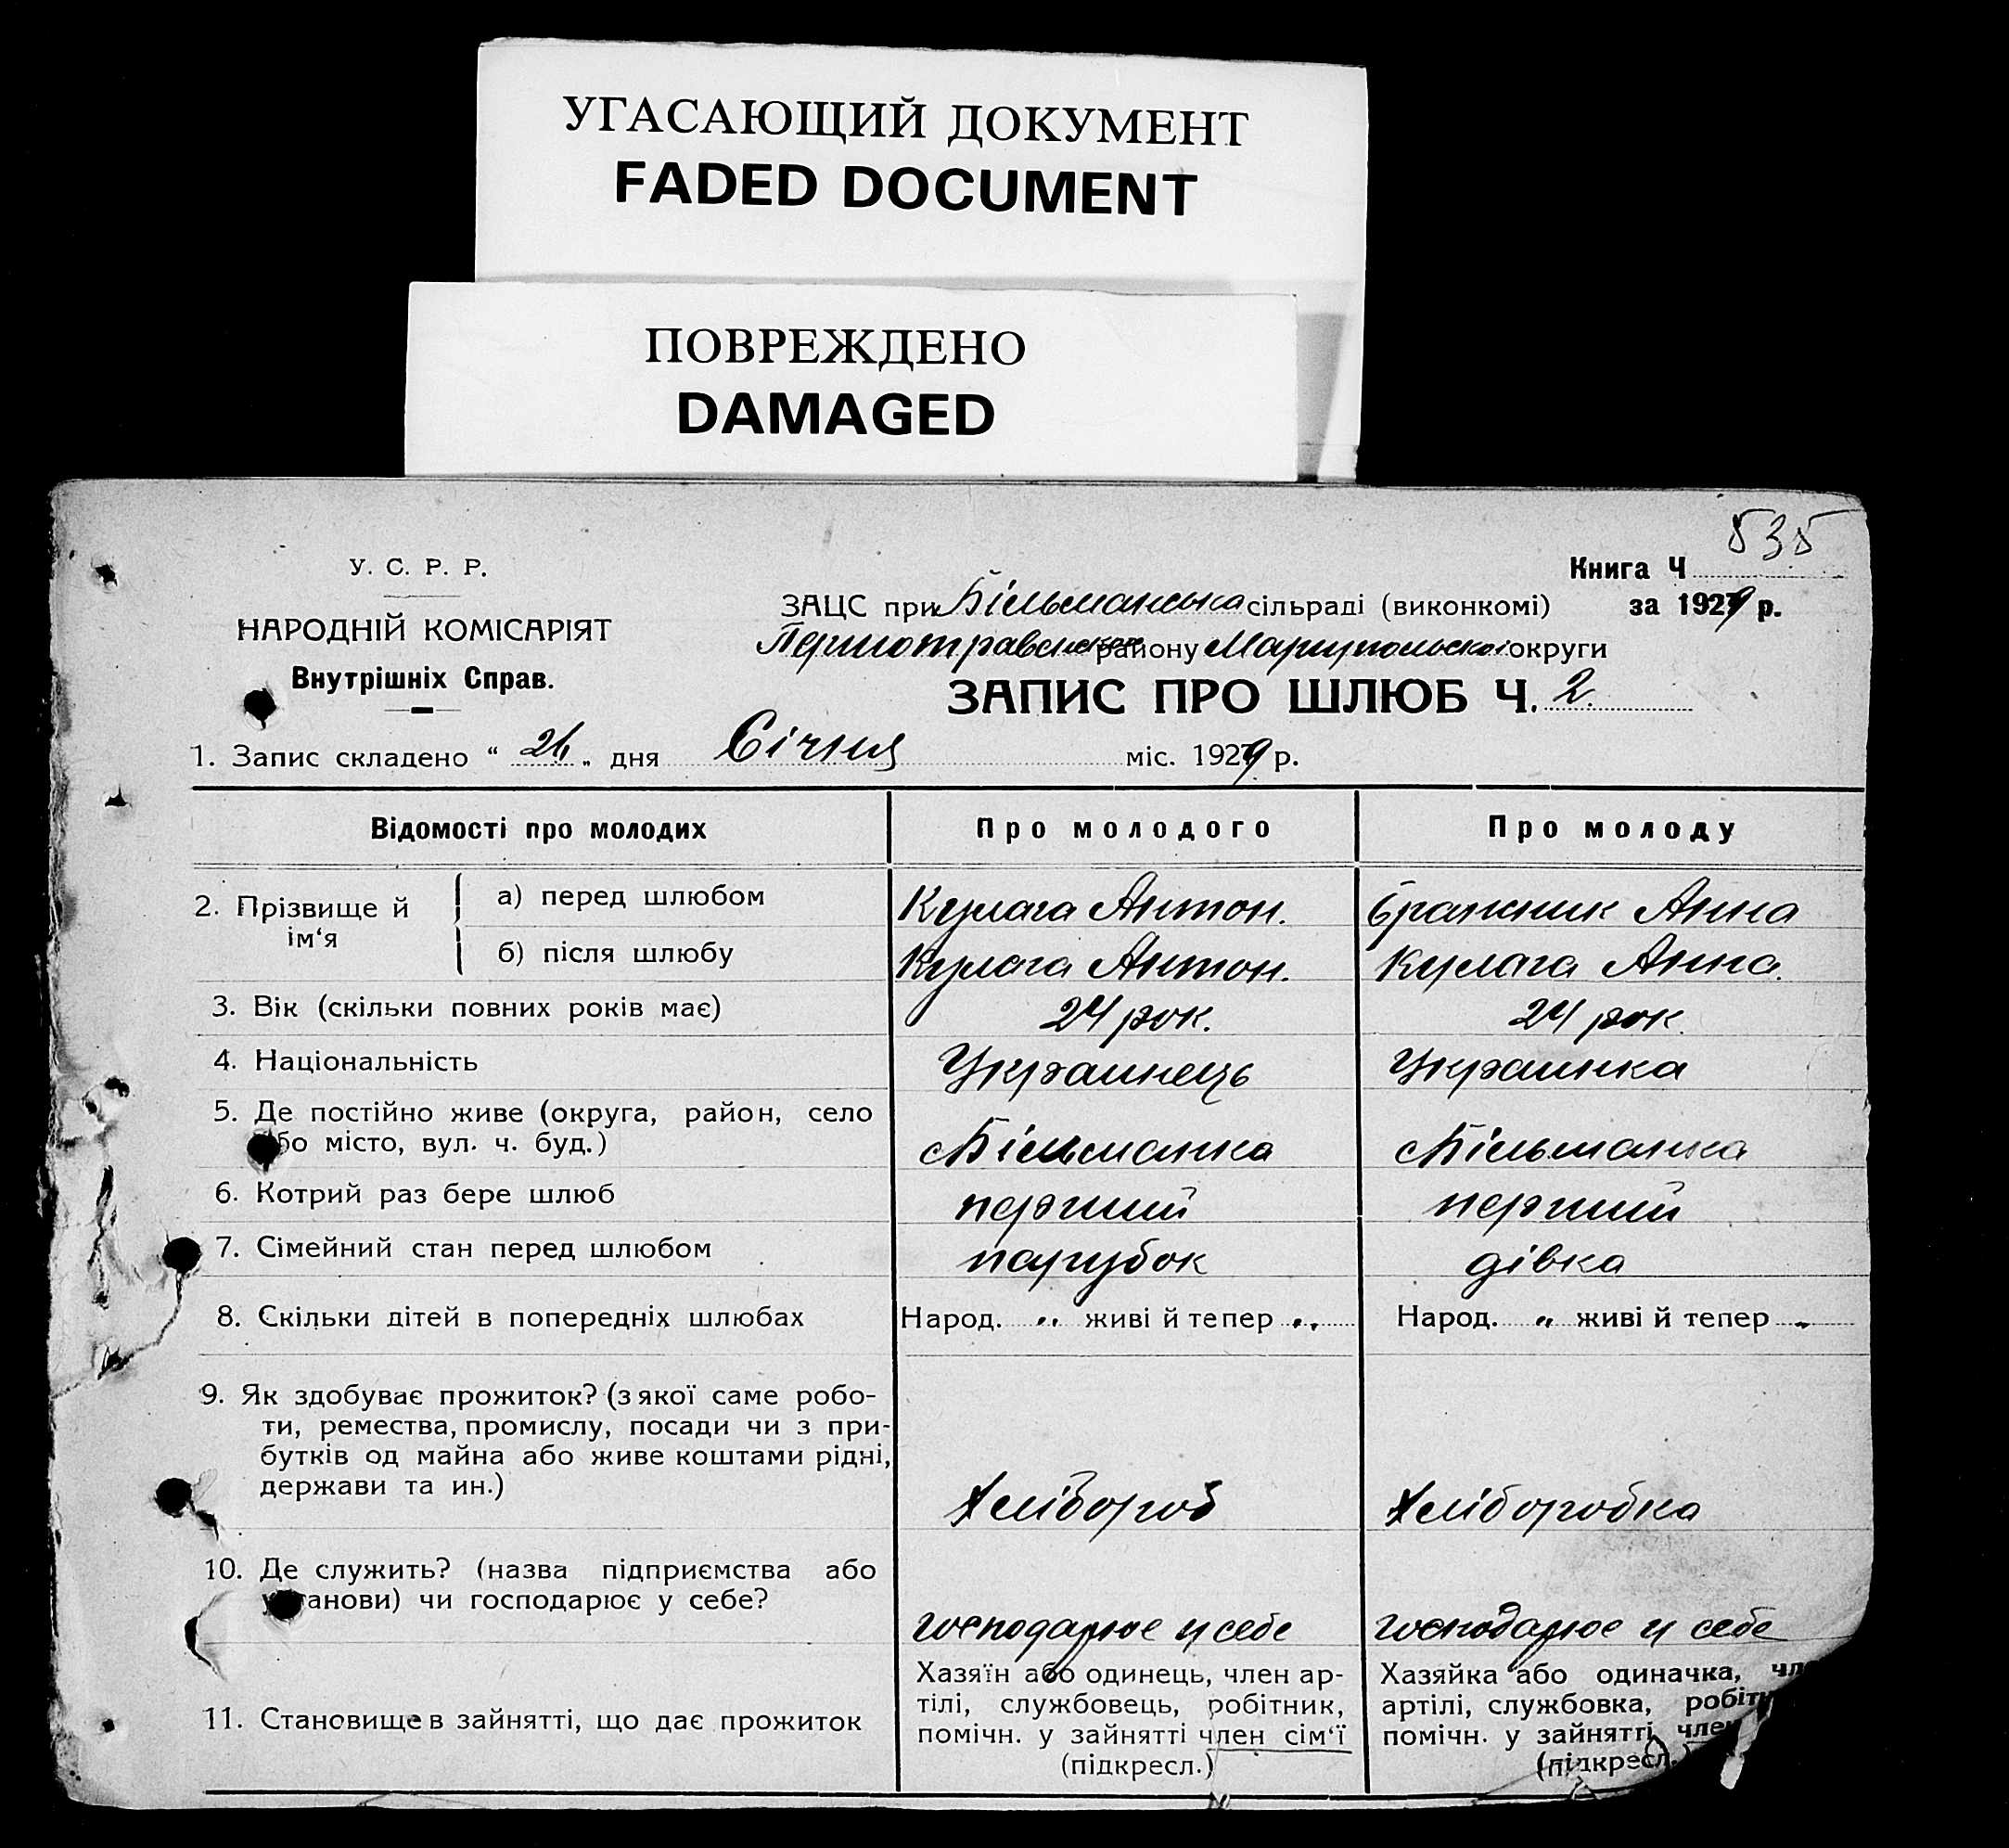 УГАСАЮЩИЙ ДОКУМЕНТ
FADED DOCUMENT
ПОВРЕЖДЕНО
DAMAGED
535
У. С. Р. Р.
Книга Ч
ЗАЦС при Більманська сільраді (виконкомі) за 1929 р.
НАРОДНІЙ КОМІСАРІЯТ
Першотравенського району Маріупольської округи
Внутрішніх Справ.
ЗАПИС ПРО ШЛЮБ Ч. 2.
1. Запис складено “ 26 „ дня Січня міс. 1929 р.
Відомості про молодих Про молодого Про молоду
2. Прізвище й ім‘я а) перед шлюбом Кулага Антон. Бражник Анна
б) після шлюбу Кулага Антон. Кулага Анна.
3. Вік (скільки повних років має) 24 рок. 24 рок.
4. Національність Украинець Украинка
5. Де постійно живе (округа, район, село
або місто, вул. ч. буд.) Більманка Більманка
6. Котрий раз бере шлюб перший перший
7. Сімейний стан перед шлюбом парубок дівка
8. Скільки дітей в попередніх шлюбах Народ. „ живі й тепер „ Народ. „ живі й тепер „
9. Як здобуває прожиток? (з якої саме робо-
ти, ремества, промислу, посади чи з при-
бутків од майна або живе коштами рідні,
держави та ин.) Хлібороб Хліборобка
10. Де служить? (назва підприємства або
установи) чи господарює у себе? господарює у себе господарює у себе
11. Становище в зайнятті, що дає прожиток
Хазяїн або одинець, член ар-
тілі, службовець, робітник,
помічн. у зайнятті член сім‘ї
(підкресл.)
Хазяйка або одиначка, чл
артілі, службовка, робітн
помічн. у зайнятті, член
(підкресл.)